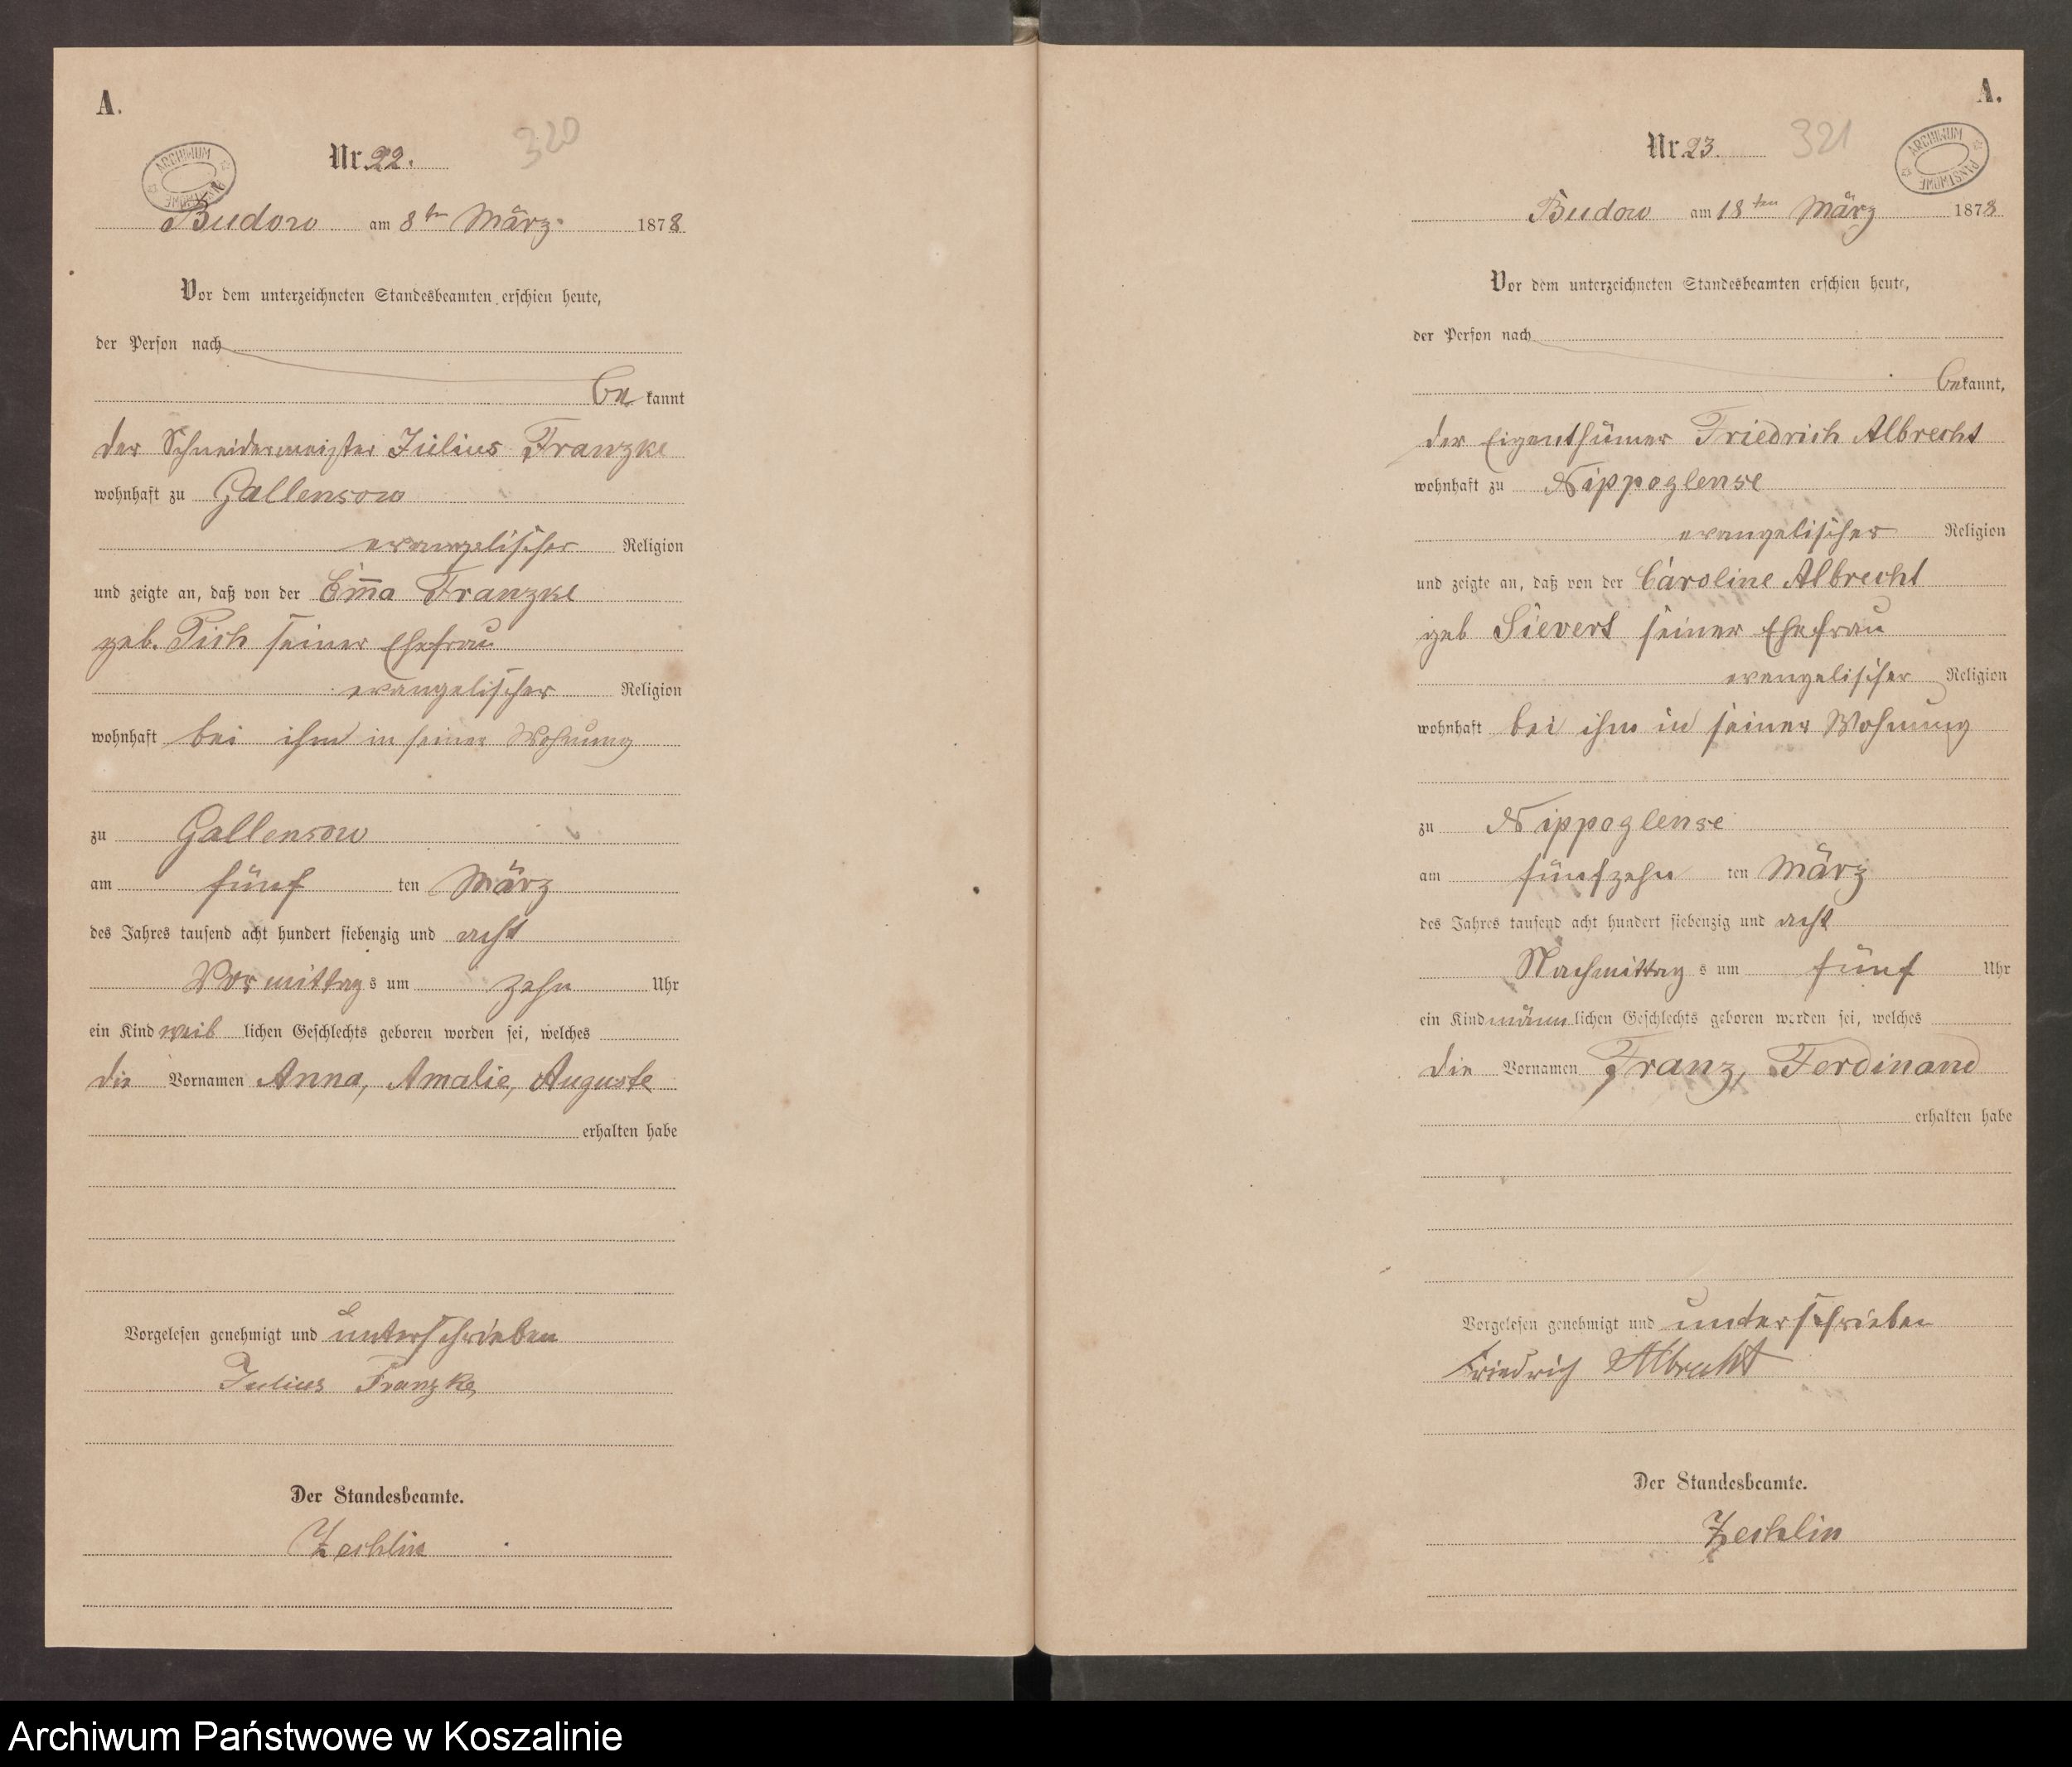 A.
Nr. 22.
320
ARCHIWUM PAŃSTWOWE
Budow am 8ten März 1878
Vor dem unterzeichneten Standesbeamten erschien heute,
der Person nach
be kannt
der Schneidermeister Julius Franzke
wohnhaft zu Gallensow
evangelischer Religion
und zeigte an, daß von der Em̅a Franzke
geb. Pich seiner Ehefrau
evangelischer Religion
wohnhaft bei ihm in seiner Wohnung
zu Gallensow
am fünf ten März
des Jahres tausend acht hundert siebenzig und acht
Vormittag s um zehn Uhr
ein Kind weib lichen Geschlechts geboren worden sei, welches
die Vornamen Anna, Amalie, Auguste
erhalten habe
Vorgelesen genehmigt und unterschrieben
Julius Franzke
Der Standesbeamte.
Zechlin
A.
Nr. 23.
321
ARCHIWUM PAŃSTWOWE
Budow am 18ten März 1878
Vor dem unterzeichneten Standesbeamten erschien heute,
der Person nach
bekannt,
der Eigenthümer Friedrich Albrecht
wohnhaft zu Nippoglense
evangelischer Religion
und zeigte an, daß von der Caroline Albrecht
geb Sievert seiner Ehefrau
evangelischer Religion
wohnhaft bei ihm in seiner Wohnung
zu Nippoglense
am fünfzehn ten März
des Jahres tausend acht hundert siebenzig und acht
Nachmittag s um fünf Uhr
ein Kind männ lichen Geschlechts geboren worden sei, welches
die Vornamen Franz, Ferdinand
erhalten habe
Vorgelesen genehmigt und unterschrieben
Friedrich Albrecht
Der Standesbeamte.
Zechlin
Archiwum Państwowe w Koszalinie